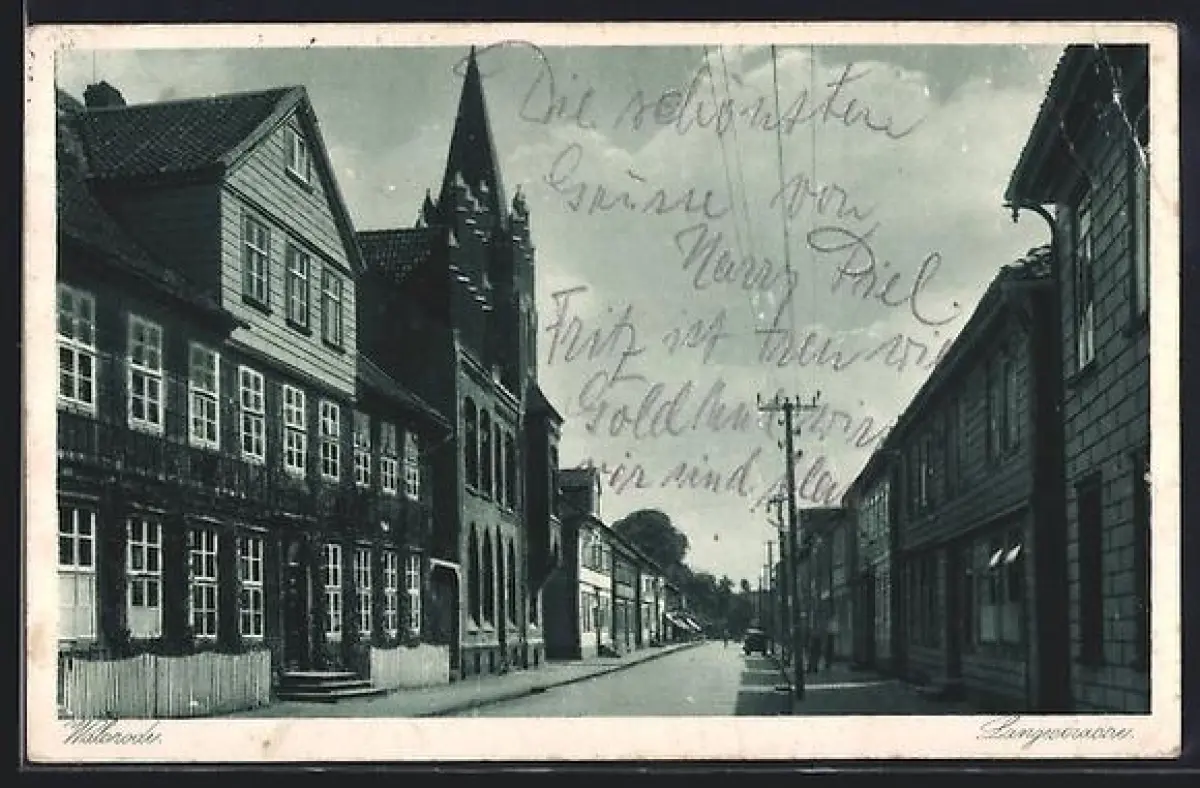 Die schönsten
Grüsse von
Harry Piel.
Fritz ist treu wie
Gold
wir sind
Walsrode.
Langestrasse.